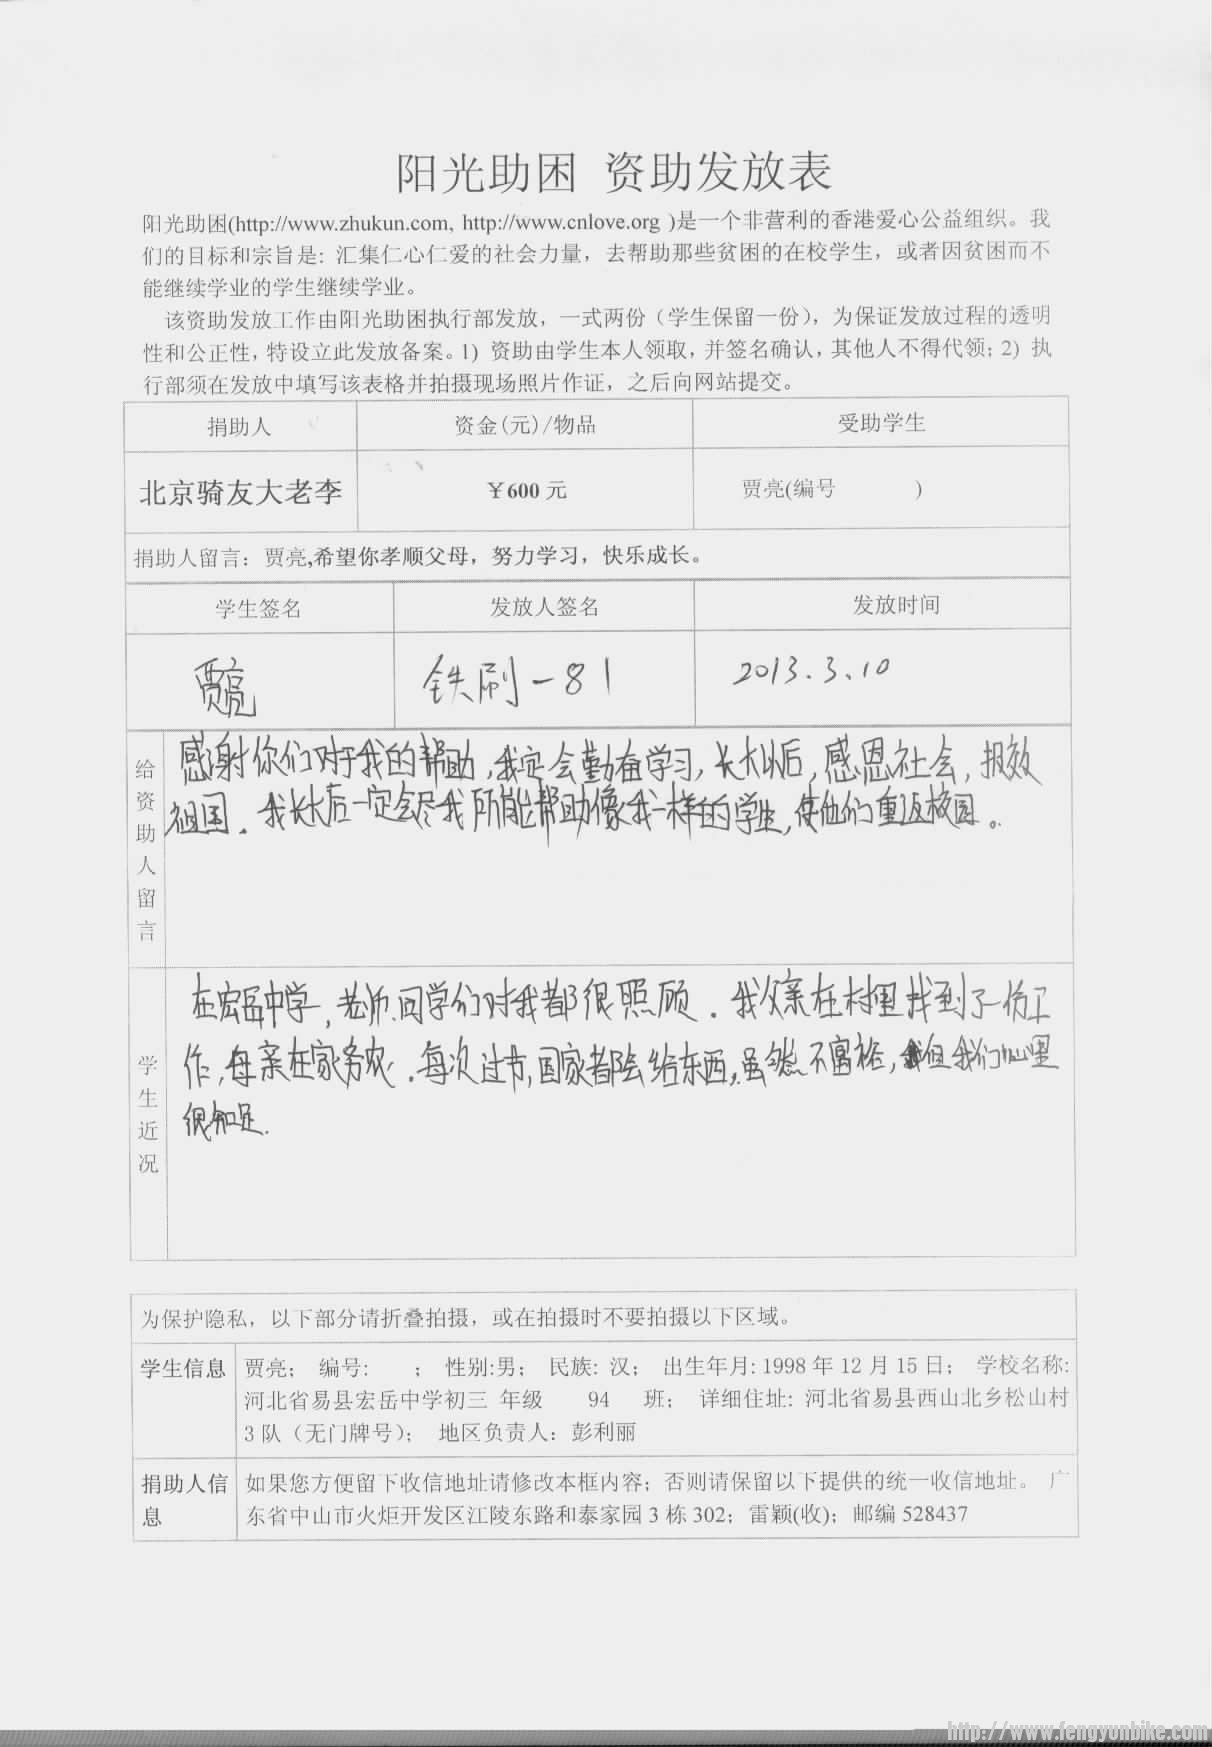 阳光助困 资助发放表
阳光助困(http://www.zhukun.com, http://www.cnlove.org )是一个非营利的香港爱心公益组织。我
们的目标和宗旨是: 汇集仁心仁爱的社会力量，去帮助那些贫困的在校学生，或者因贫困而不
能继续学业的学生继续学业。
该资助发放工作由阳光助困执行部发放，一式两份（学生保留一份），为保证发放过程的透明
性和公正性，特设立此发放备案。1) 资助由学生本人领取，并签名确认，其他人不得代领；2) 执
行部须在发放中填写该表格并拍摄现场照片作证，之后向网站提交。
捐助人 资金(元)/物品 受助学生
北京骑友大老李 ￥600 元 贾亮(编号 )
捐助人留言：贾亮,希望你孝顺父母，努力学习，快乐成长。
学生签名 发放人签名 发放时间
贾亮 铁刷-81 2013.3.10
给资助人留言
感谢你们对于我的帮助,我定会勤奋学习,长大以后,感恩社会,报效
祖国.我长大后一定会尽我所能帮助像我一样的学生,使他们重返校园。
学生近况
在宏岳中学,老师.同学们对我都很照顾.我父亲在村里找到了一份工
作,母亲在家务农.每次过节,国家都会给东西,虽然不富裕,但我们心里
很知足.
为保护隐私，以下部分请折叠拍摄，或在拍摄时不要拍摄以下区域。
学生信息 贾亮； 编号: ； 性别:男； 民族: 汉； 出生年月: 1998 年 12 月 15 日； 学校名称:
河北省易县宏岳中学初三 年级 94 班； 详细住址: 河北省易县西山北乡松山村
3 队（无门牌号）； 地区负责人：彭利丽
捐助人信 如果您方便留下收信地址请修改本框内容；否则请保留以下提供的统一收信地址。 广
息 东省中山市火炬开发区江陵东路和泰家园 3 栋 302；雷颖(收)；邮编 528437
http://www.fengyunbike.com